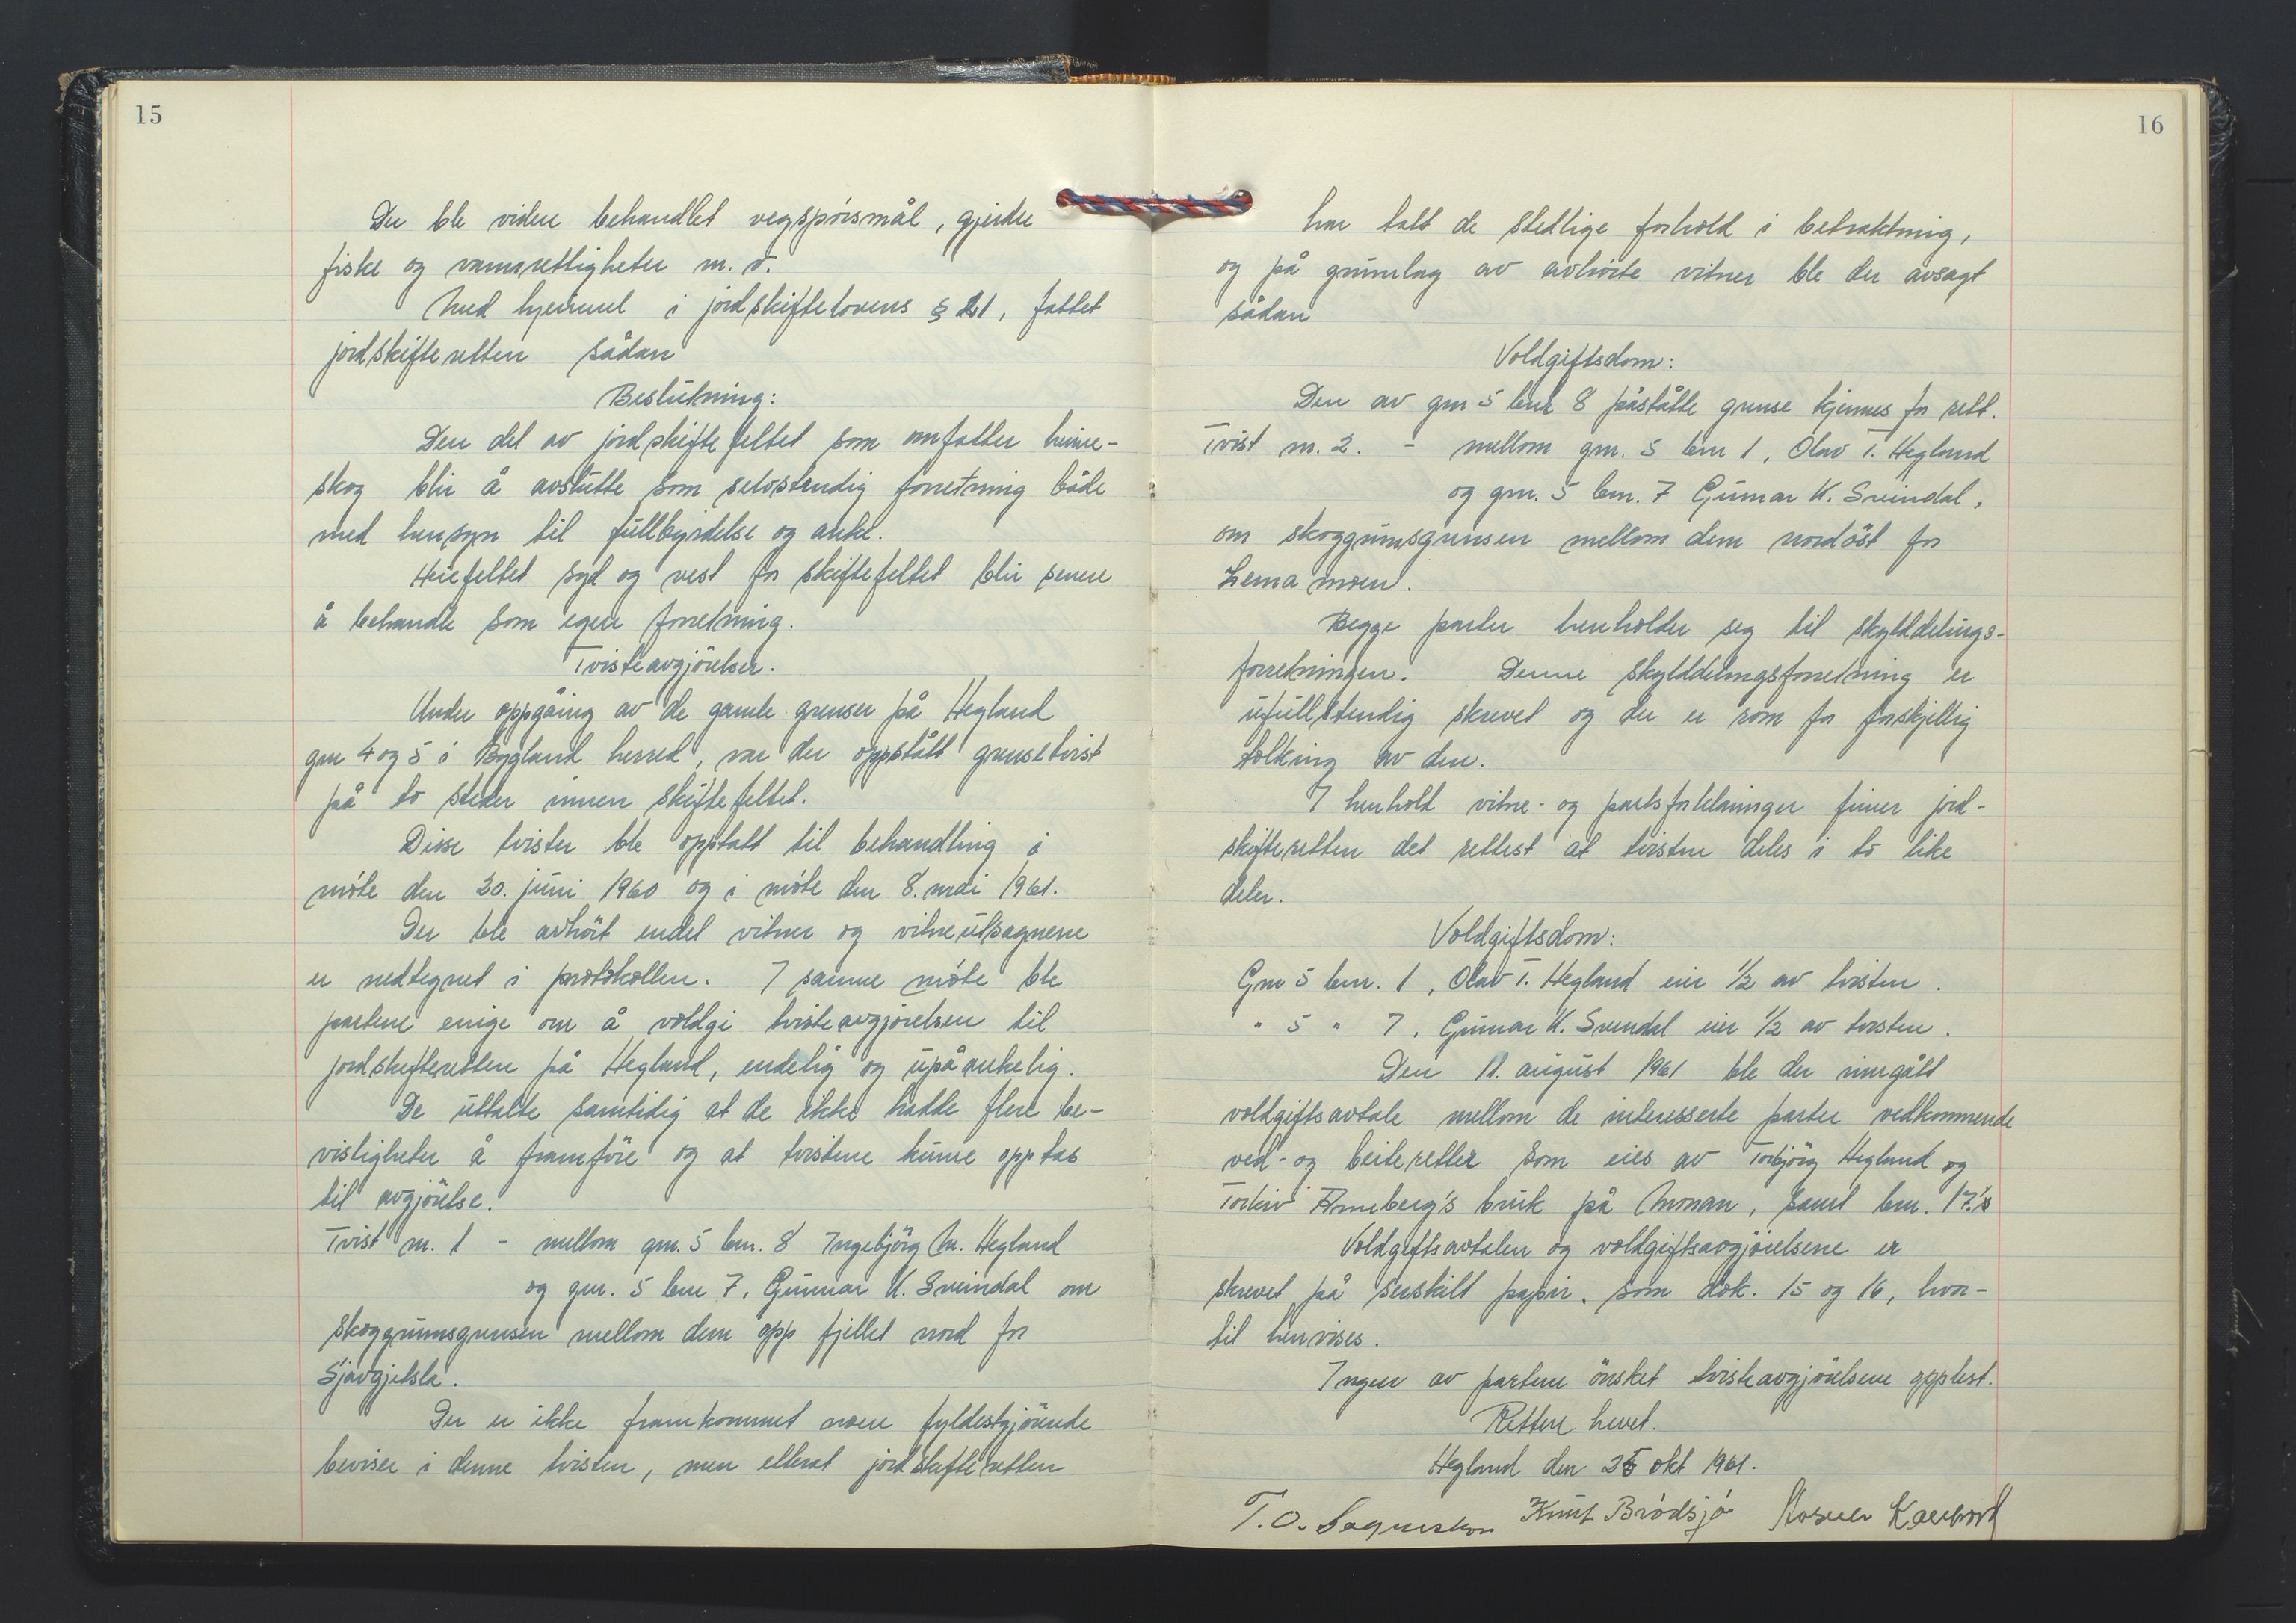 15
Der ble videre behandlet vegspörsmål, gjerder
fiske og vannrettigheter m. v.
Med hjemmel i jordskiftelovens § 21, fattet
jordskifteretten sådan
Beslutning:
Den del av jordskiftefeltet som omfatter heime-
skog blir å avslutte som selvstendig forretning både
med hensyn til fullbyrdelse og anke.
Heiefeltet syd og vest for skiftefeltet blir senere
å behandle som egen forretning.
Tvisteavgjörelser.
Under oppgåing av de gamle grenser på Hegland
gnr 4 og 5 i Bygland herred, var der oppstått grensetvist
på to steder innen skiftefeltet.
Disse tvister ble opptatt til behandling i
möte den 30. juni 1960 og i möte den 8. mai 1961.
Der ble avhört endel vitner og vitneutsagnene
er nedtegnet i protokollen. I samme möte ble
partene enige om å voldgi tvisteavgjörelsen til
jordskifteretten på Hegland, endelig og upåankelig.
De uttalte samtidig at de ikke hadde flere be-
visligheter å framföre og at tvistene kunne opptas
til avgjörelse.
Tvist nr. 1 - mellom gnr. 5 bnr. 8 Ingebjörg M. Hegland
og gnr. 5 bnr 7, Gunnar K. Sveindal om
skoggrunnsgrensen mellom dem opp fjellet nord for
Sjavgjelsla.
Der er ikke framkommet noen fyldestgjörende
beviser i denne tvisten, men etterat jordskifteretten
16
har tatt de stedlige forhold i betraktning,
og på grunnlag av avhörte vitner ble der avsagt
sådan
Voldgiftsdom:
Den av gnr 5 bnr 8 påståtte grense kjennes for rett.
Tvist nr. 2. - mellom gnr. 5 bnr 1, Olav T. Hegland
og gnr. 5 bnr. 7 Gunnar K. Sveindal,
om skoggrunnsgrensen mellom dem nordöst for
Lema moen.
Begge parter henholder seg til skylddelings-
forretningen. Denne skylddelingsforretning er
ufullstendig skrevet og der er rom for forskjellig
tolking av den.
I henhold vitne- og partsforklaringer finner jord-
skifteretten det rettest at tvisten deles i to like
deler.
Voldgiftsdom:
Gnr 5 bnr. 1, Olav T. Hegland eier 1/2 av tvisten.
" 5 " 7, Gunnar K. Sveindal eier 1/2 av tvisten.
Den 11. august 1961 ble der inngått
voldgiftsavtale mellom de interesserte parter vedkommende
ved- og beiteretter som eies av Torbjörg Hegland og
Torleiv Anneberg's bruk på Monan, samt bnr. 17's
Voldgiftsavtalen og voldgiftsavgjörelsene er
skrevet på særskilt papir, som dok. 15 og 16, hvor-
til henvises.
Ingen av partene önsket tvisteavgjörelsene opplest.
Retten hevet.
Hegland den 25 okt 1961.
T. O. Knut Brödsjö